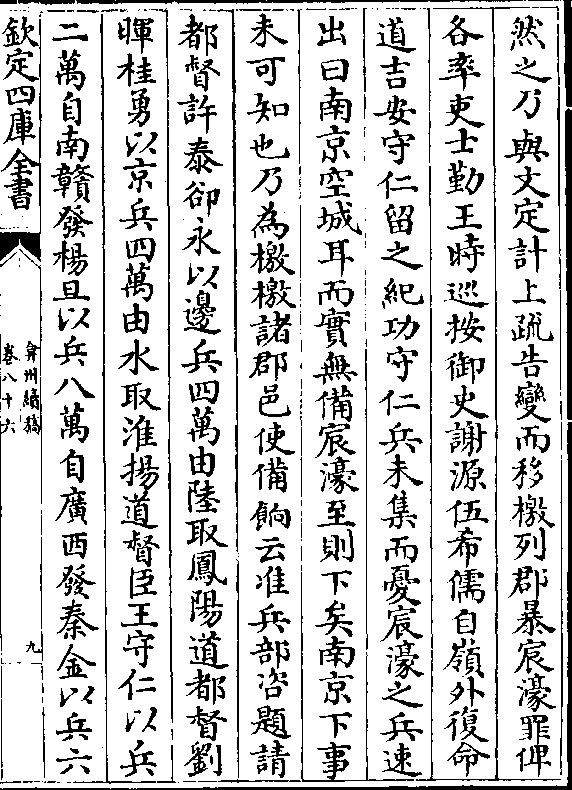 然之乃與文定計上疏告變而移檄列郡暴宸濠罪俾
各率吏士勤王時巡按御史謝源伍希儒自嶺外復命
道吉安守仁留之紀功守仁兵未集而憂宸濠之兵速
出曰南京空城耳而實無備宸濠至則下矣南京下事
未可知也乃為檄檄諸郡邑使備餉云准兵部咨題請
都督許泰卻永以邊兵四萬由陸取鳳陽道都督劉
暉桂勇以京兵四萬由水取淮揚道督臣王守仁以兵
二萬自南贛發楊旦以兵八萬自廣西發秦金以兵六
欽定四庫全書
弇州續稿
卷八十六
九